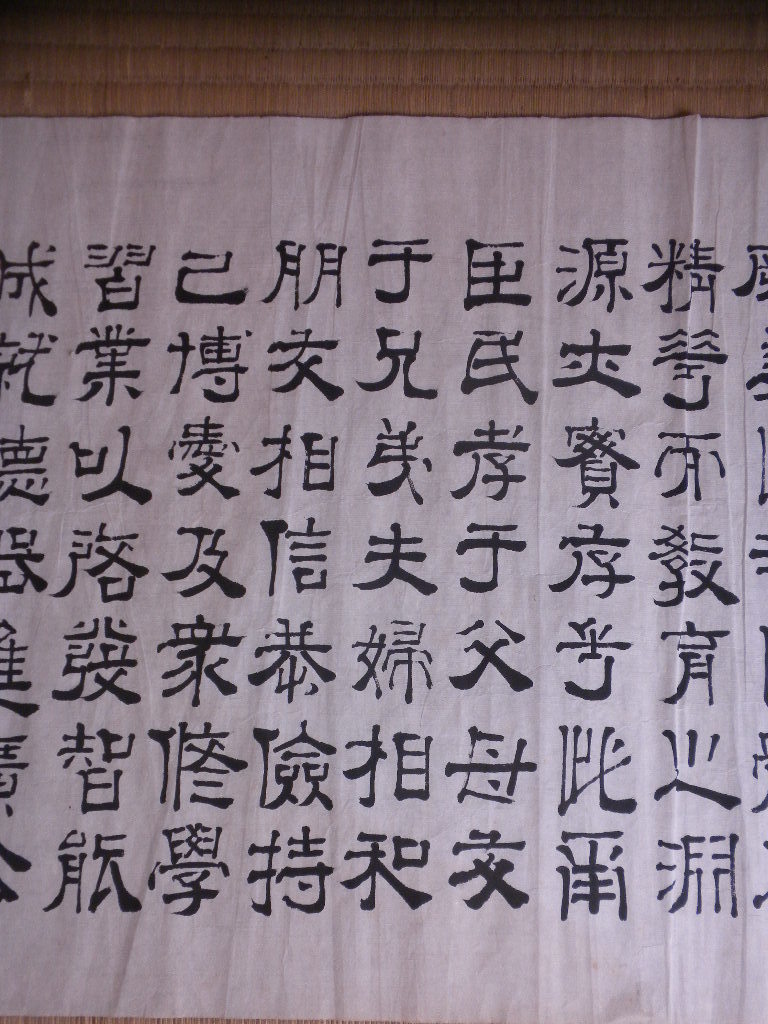 精華而教育之淵
源亦實存乎此爾
臣民孝于父母友
于兄弟夫婦相和
朋友相信恭儉持
己博愛及衆修學
習業以啓發智能
成就德器進廣公